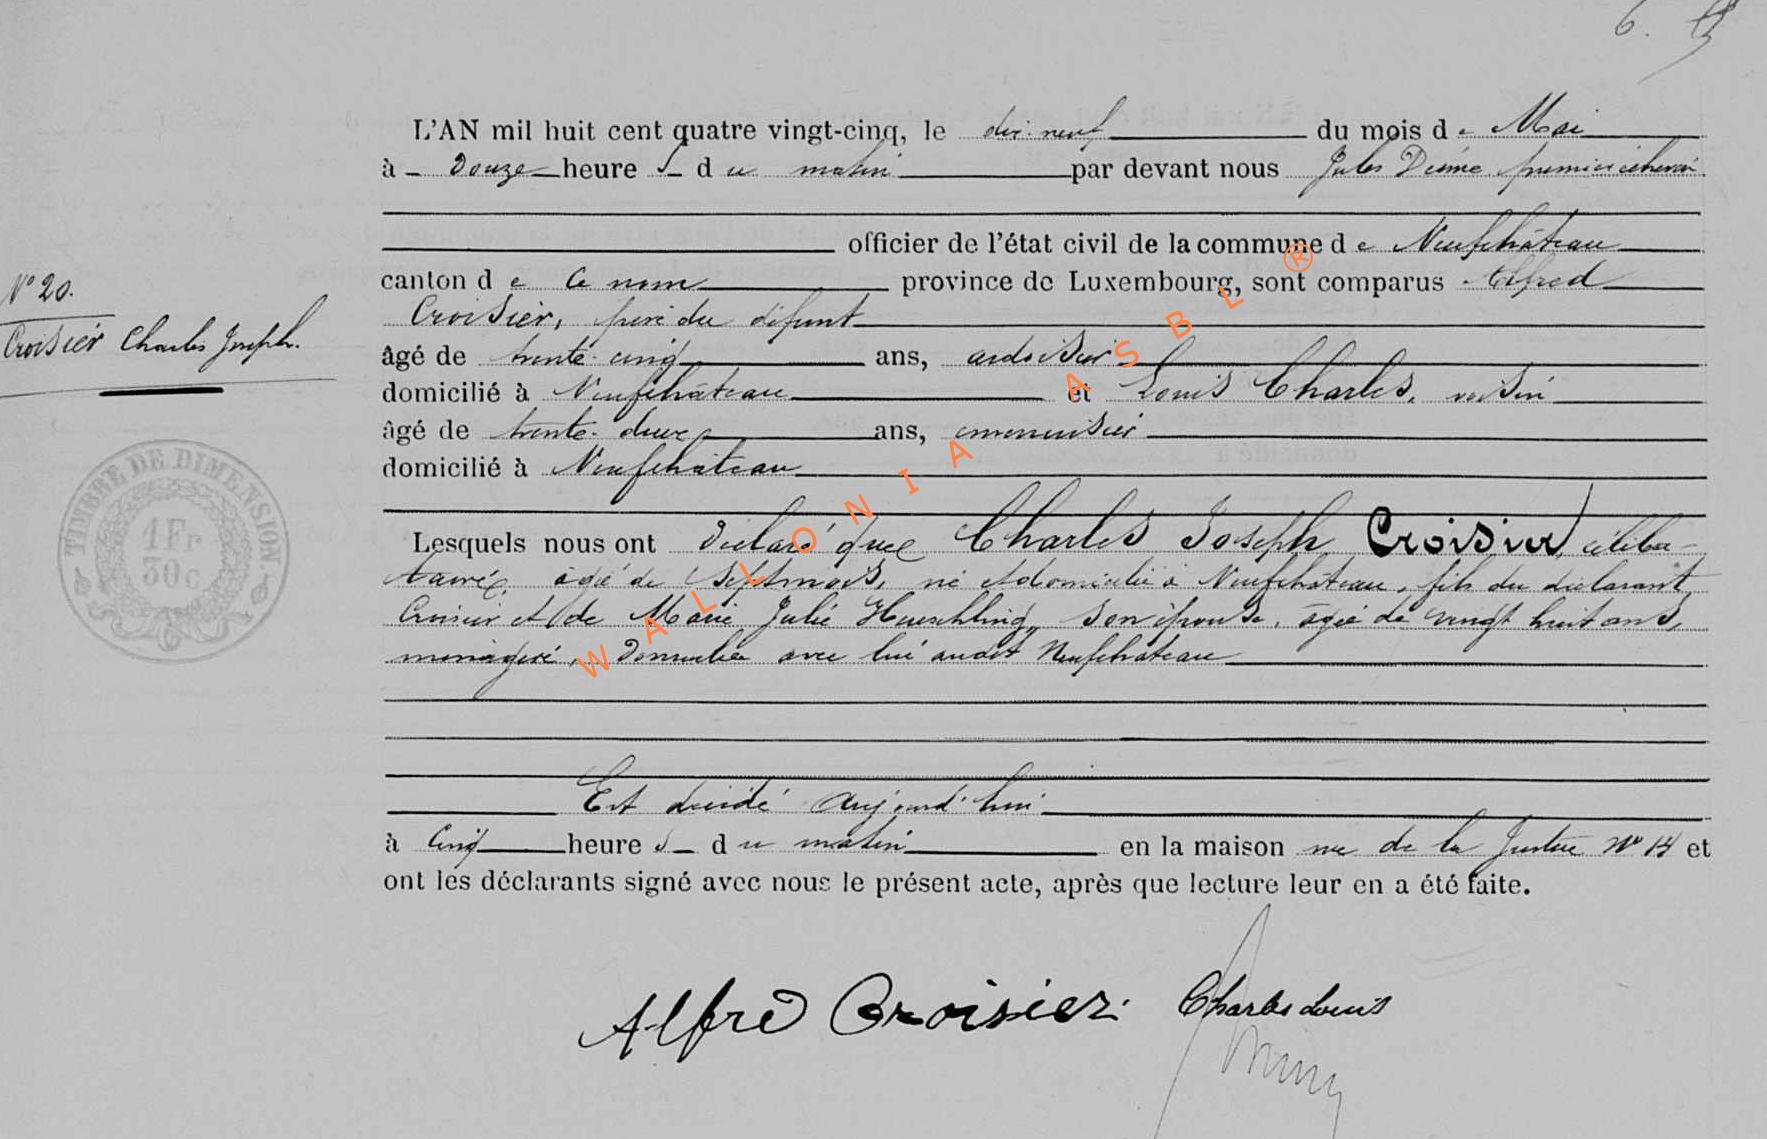 6.
L'AN mil huit cent quatre vingt-cinq, le dix-neuf du mois de Mai
à Douze heures du matin par devant nous Jules premier échevin
officier de l'état civil de la commune de Neufchâteau
canton de ce nom province de Luxembourg, sont comparus Alfred
Croisier, père du défunt
âgé de trente-cinq ans, ardoisier
domicilié à Neufchâteau et Louis Charles, voisin
âgé de trente-deux ans, menuisier
domicilié à Neufchâteau
N° 20.
Croisier Charles Joseph.
TIMBRE DE DIMENSION.
1 Fr
30c
Lesquels nous ont déclaré que Charles Joseph Croisier, céliba-
taire, âgé de sept mois, né et domicilié à Neufchâteau, fils du déclarant
Croisier et de Marie Julie son épouse, âgée de vingt huit ans,
ménagère, domiciliée avec lui audit Neufchâteau
Est décédé aujourd'hui
à Cinq heures du matin en la maison rue de la Justice N° 14 et
ont les déclarants signé avec nous le présent acte, après que lecture leur en a été faite.
Alfred Croisier. Charles Louis
WALLONIA ASBL ®